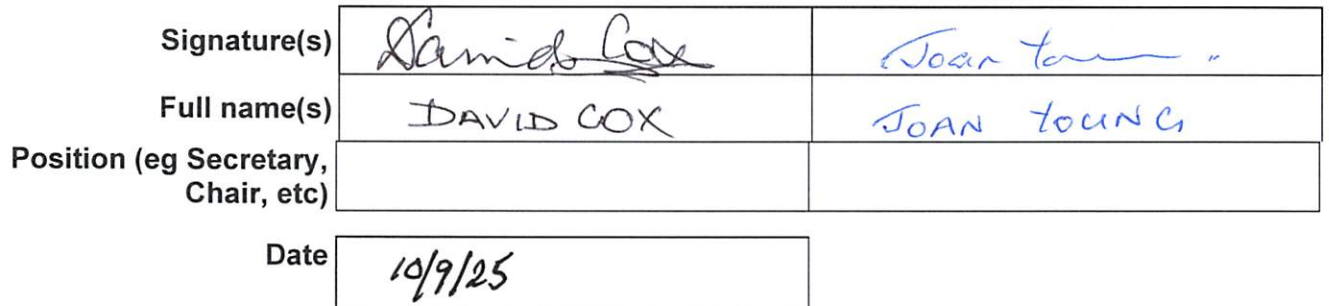 Signature(s) David Cox Joan Young
Full name(s) DAVID COX JOAN YOUNG
Position (eg Secretary,
Chair, etc)
Date 10/9/25